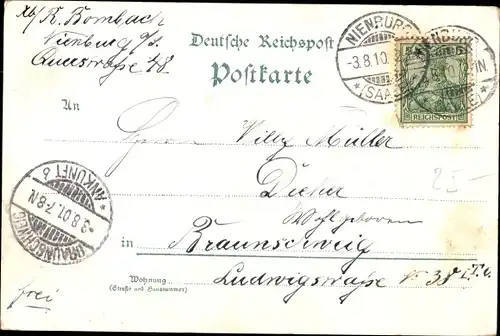 Abs/ R. Bombach
Nienburg a/s.
Querstraße 48.
Deutsche Reichspost
Postkarte
NIENBURG
-3.8.10
*(SAALE)*
REICHSPOST
An
Herrn Willy Müller
Wohlgeboren
in Braunschweig
Wohnung
(Straße und Hausnummer)
Ludwigstraße № 38 I.
BRAUNSCHWEIG
-3.8.01.7-8.N
*ANKUNFT 6
frei
25-